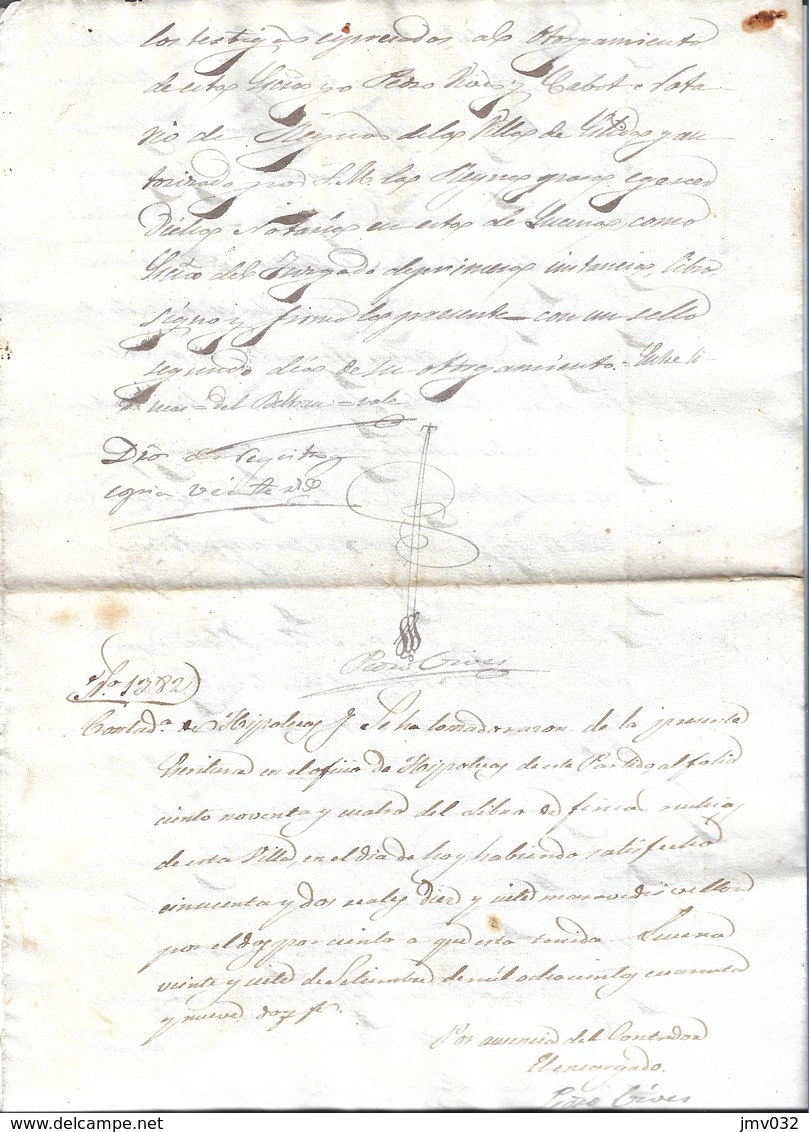 los testigos expresados, al otorgamiento
de esta Escra yo Pedro Gives y Cabot Nota
rio de Reynos de la Villa de y au
torizado por S. M. la Reyna para egercer
dicha Notaría en esta de Lucena, como
Escno del Juzgado de primera instancia, libro
signo y firmo la presente con un sello
segundo dia de su otorgamiento. = Entre li
neas = del Beltran = vale
Dros de registro y
copia veinte rs
Pedro Gives
No. 1382
Contada de Hipotecas Se ha tomado razon de la presente
Escritura en el oficio de Hipotecas de este Partido, al folio
ciento noventa y cuatro del Libro de fincas rusticas
de esta Villa, en el dia de hoy habiendo satisfecho
cincuenta y dos reales diez y siete maravedis vellon
por el dos por ciento a que esta tenida. Lucena
veinte y siete de Setiembre de mil ochocientos cuarenta
y nueve doy fe.
Por ausencia del Contador
El encargado.
Pedro Gives
jmv032